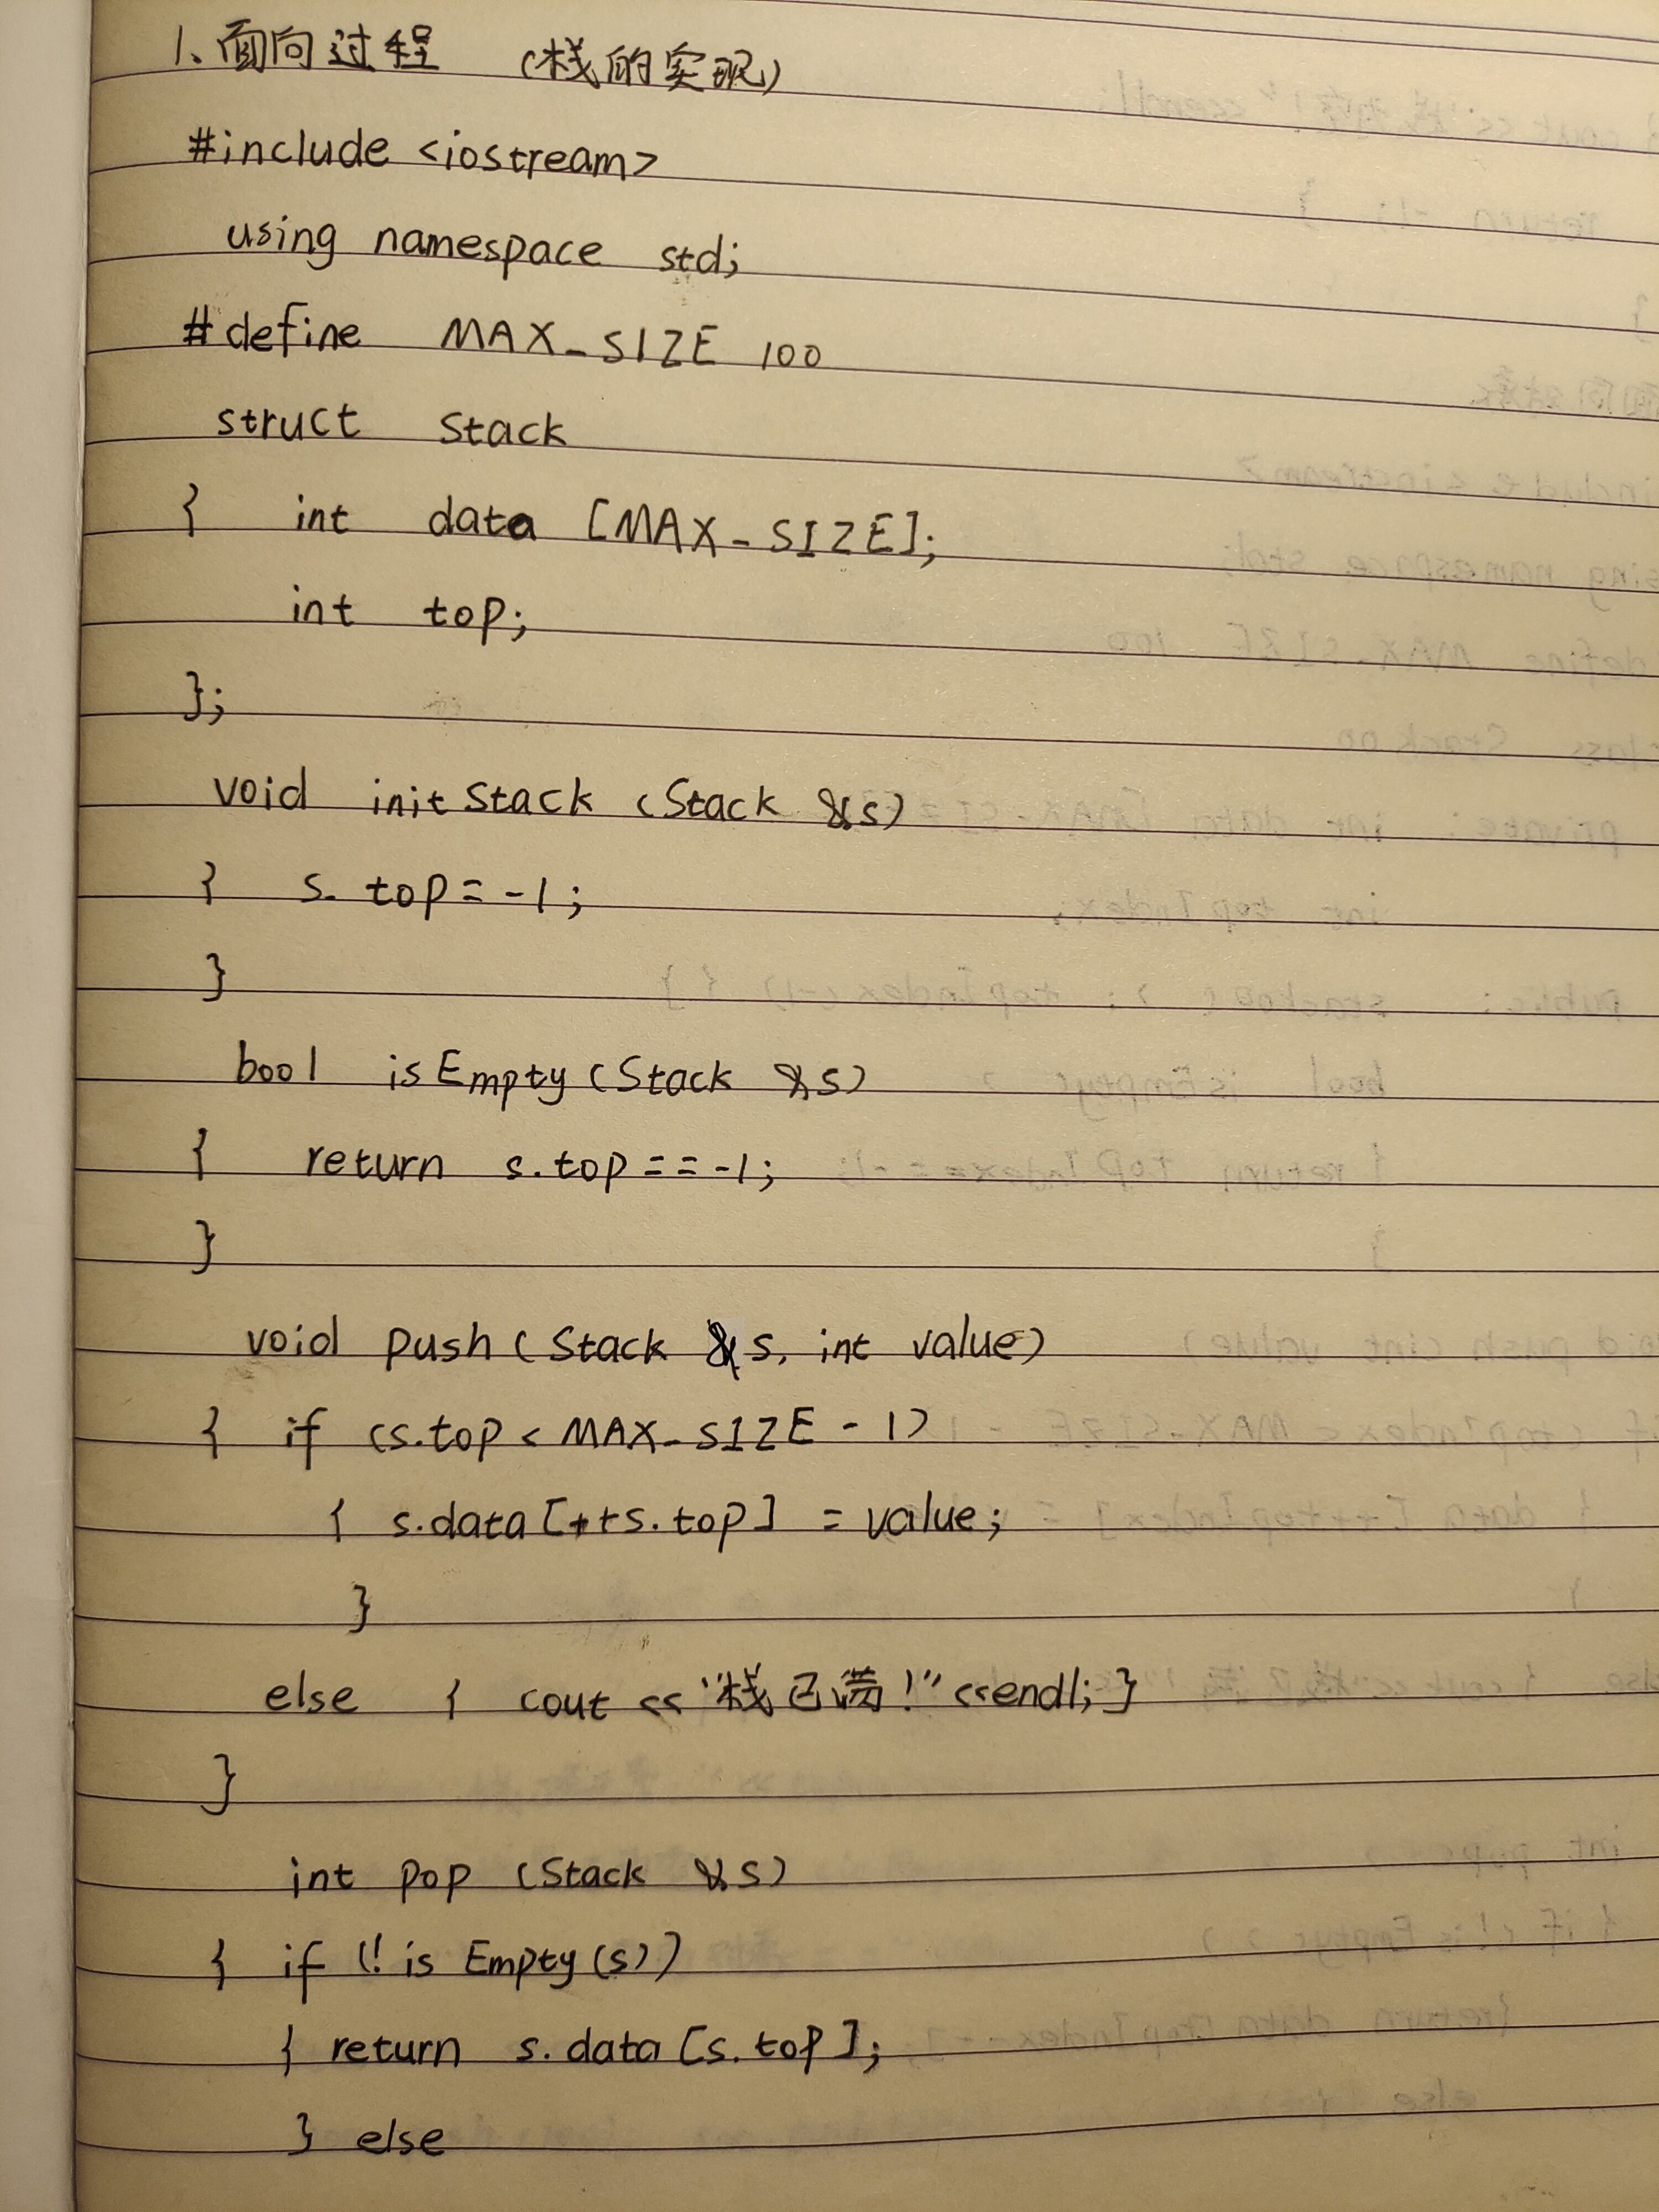 1、面向过程 (栈的实现)
#include <iostream>
using namespace std;
#define MAX_SIZE 100
struct Stack
{ int data [MAX_SIZE];
int top;
};
void initStack (Stack &s)
{ s. top = -1;
}
bool isEmpty (Stack &s)
{ return s.top == -1;
}
void push (Stack &s, int value)
{ if (s.top < MAX_SIZE - 1)
{ s.data [++s.top] = value;
}
else { cout << "栈已满!" <<endl; }
}
int pop (Stack &s)
{ if (! is Empty (s))
{ return s. data [s. top];
} else